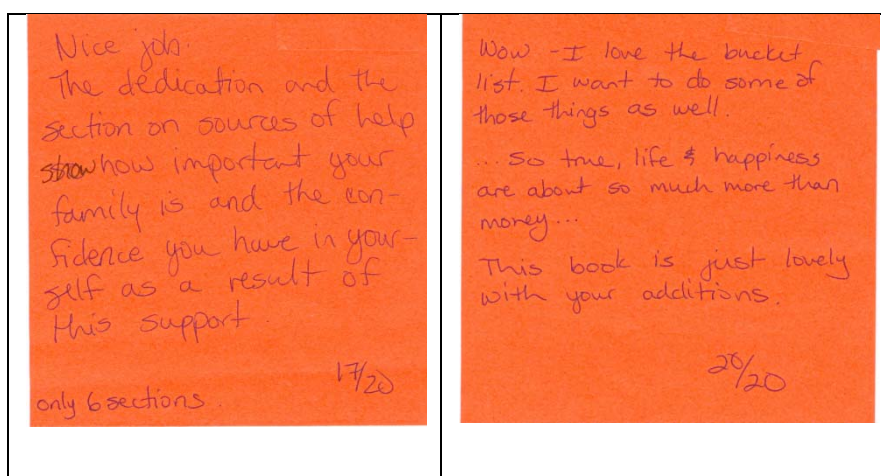 Nice job.
The dedication and the
section on sources of help
show how important your
family is and the con-
fidence you have in your-
self as a result of
this support.
17/20
only 6 sections.
Wow - I love the bucket
list. I want to do some of
those things as well.
... So true, life & happiness
are about so much more than
money...
This book is just lovely
with your additions.
20/20